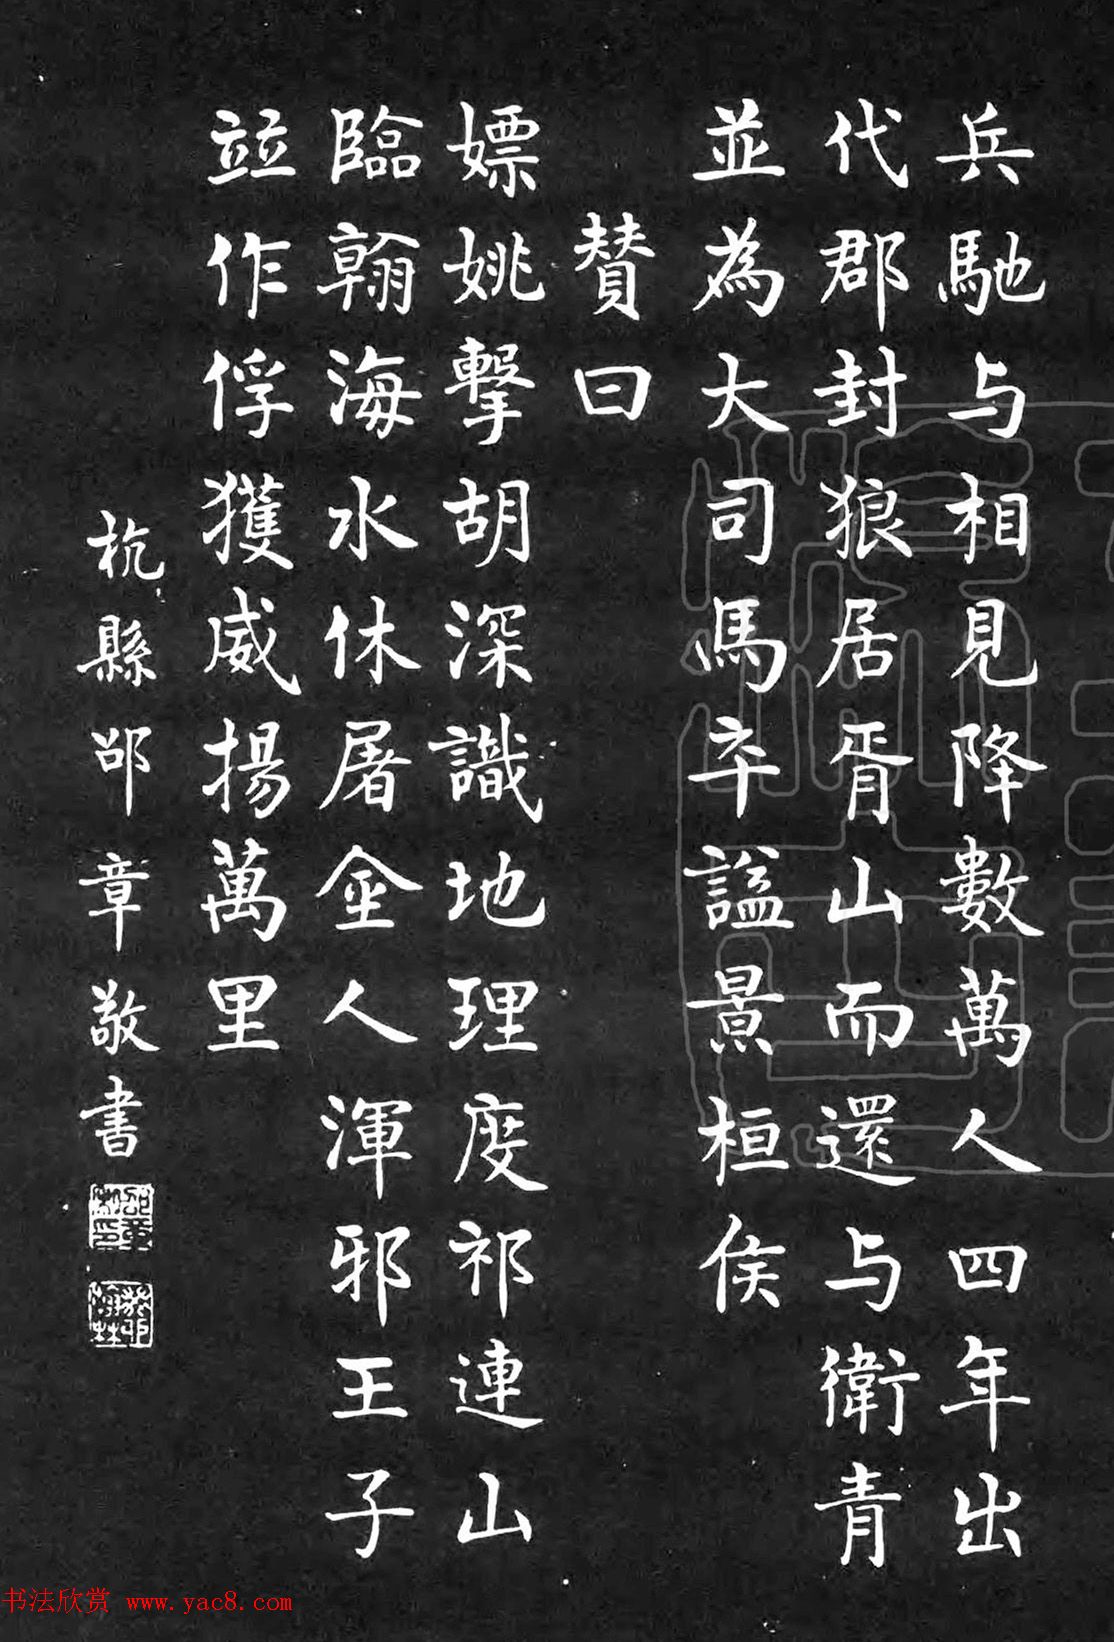 兵馳与相見降數萬人四年出
代郡封狼居胥山而還与衛青
並為大司馬卒謚景桓侯
贊曰
嫖姚擊胡深識地理度祁連山
臨翰海水休屠金人渾邪王子
竝作俘獲威揚萬里
杭縣邵章敬書
书法欣赏 www.yac8.com